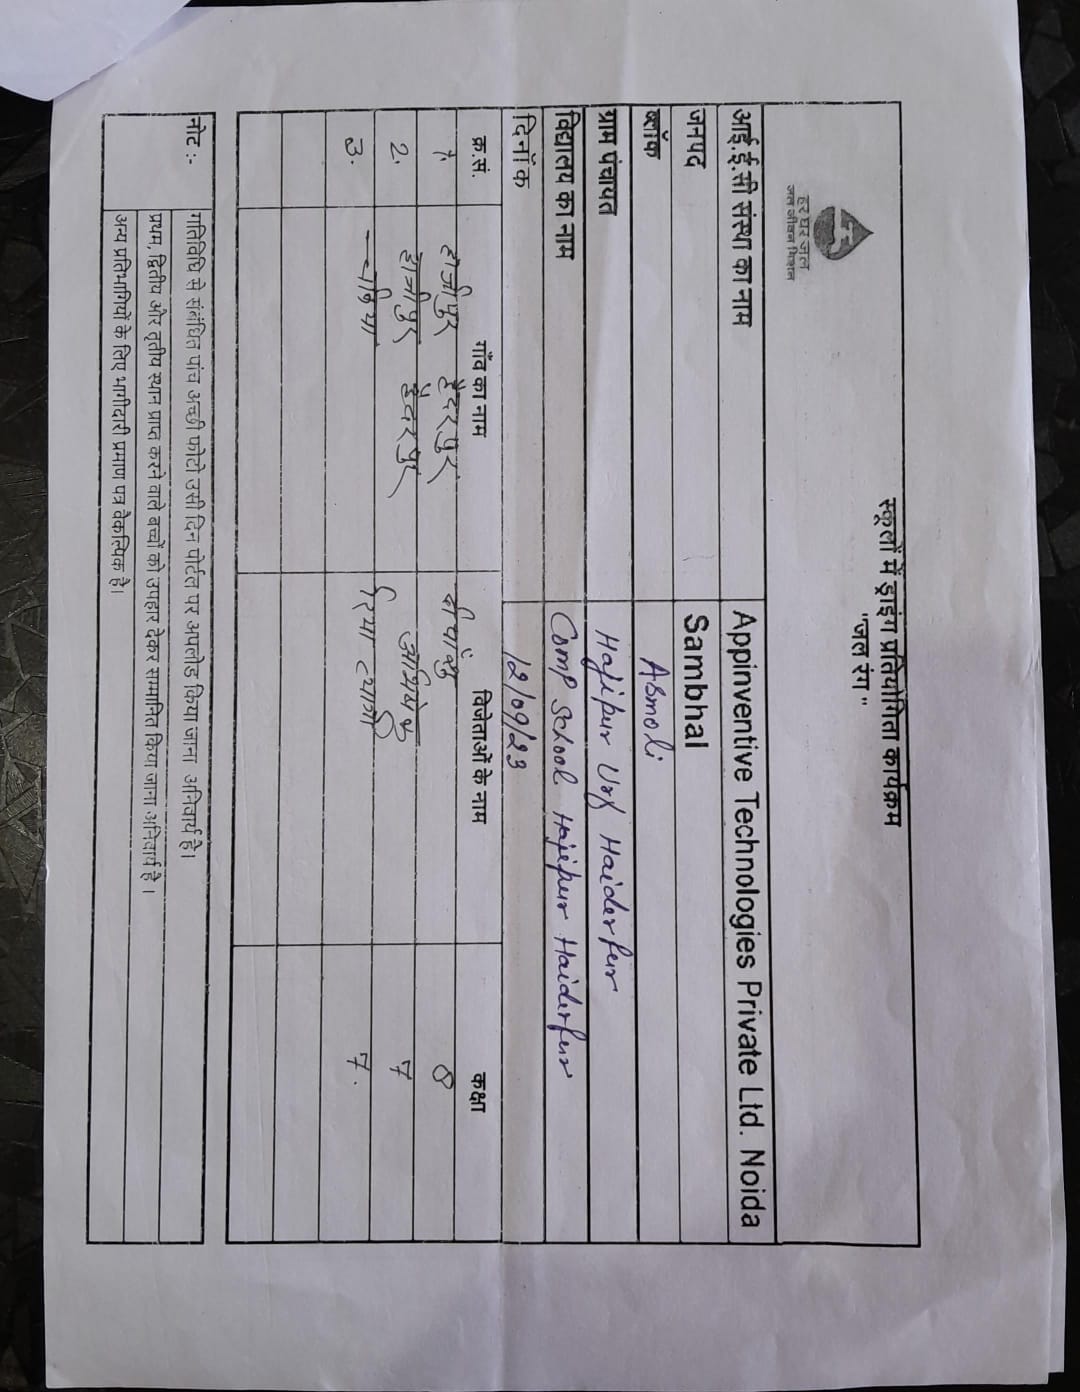 हर घर जल
जल जीवन मिशन
स्कूलों में ड्राइंग प्रतियोगिता कार्यक्रम
"जल रंग"
आई.ई.सी संस्था का नाम Appinventive Technologies Private Ltd. Noida
जनपद Sambhal
ब्लॉक Asmoli
ग्राम पंचायत Hajipur Urf Haiderpur
विद्यालय का नाम Comp School Hajipur Haiderpur
दिनाँक 12/09/23
क्र.सं. गाँव का नाम विजेताओं के नाम कक्षा
1. हाजीपुर हैदरपुर दीपांशु 8
2. हाजीपुर हैदरपुर अभिषेक 7
3. रिया त्यागी 7.
नोट :- गतिविधि से संबंधित पांच अच्छी फोटो उसी दिन पोर्टल पर अपलोड किया जाना अनिवार्य है।
प्रथम, द्वितीय और तृतीय स्थान प्राप्त करने वाले बच्चों को उपहार देकर सम्मानित किया जाना अनिवार्य है ।
अन्य प्रतिभागियों के लिए भागीदारी प्रमाण पत्र वैकल्पिक है।